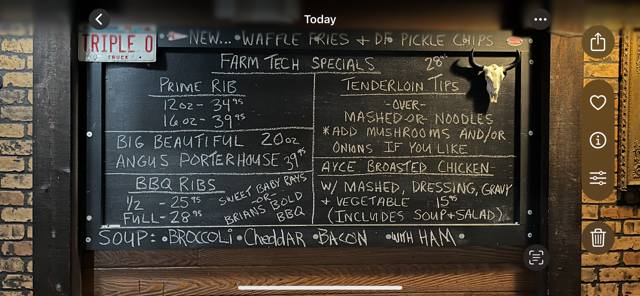 Today
TRIPLE O
TRUCK
NEW... • WAFFLE FRIES + DF PICKLE CHIPS
FARM TECH SPECIALS
PRIME RIB
12oz - 34⁹⁵
16oz - 39⁹⁵
BIG BEAUTIFUL 20oz
ANGUS PORTERHOUSE 39⁹⁵
BBQ RIBS
1/2 - 25⁹⁵
FULL - 28⁹⁵
SWEET BABY RAYS
-OR-
BRIAN'S BOLD
BBQ
28⁹⁵
TENDERLOIN TIPS
-OVER-
MASHED-OR-NOODLES
*ADD MUSHROOMS AND/OR
ONIONS IF YOU LIKE
AYCE BROASTED CHICKEN
W/ MASHED, DRESSING, GRAVY
+ VEGETABLE 15⁹⁵
(INCLUDES SOUP+SALAD)
SOUP: • BROCCOLI • CHEDDAR • BACON • WITH HAM •